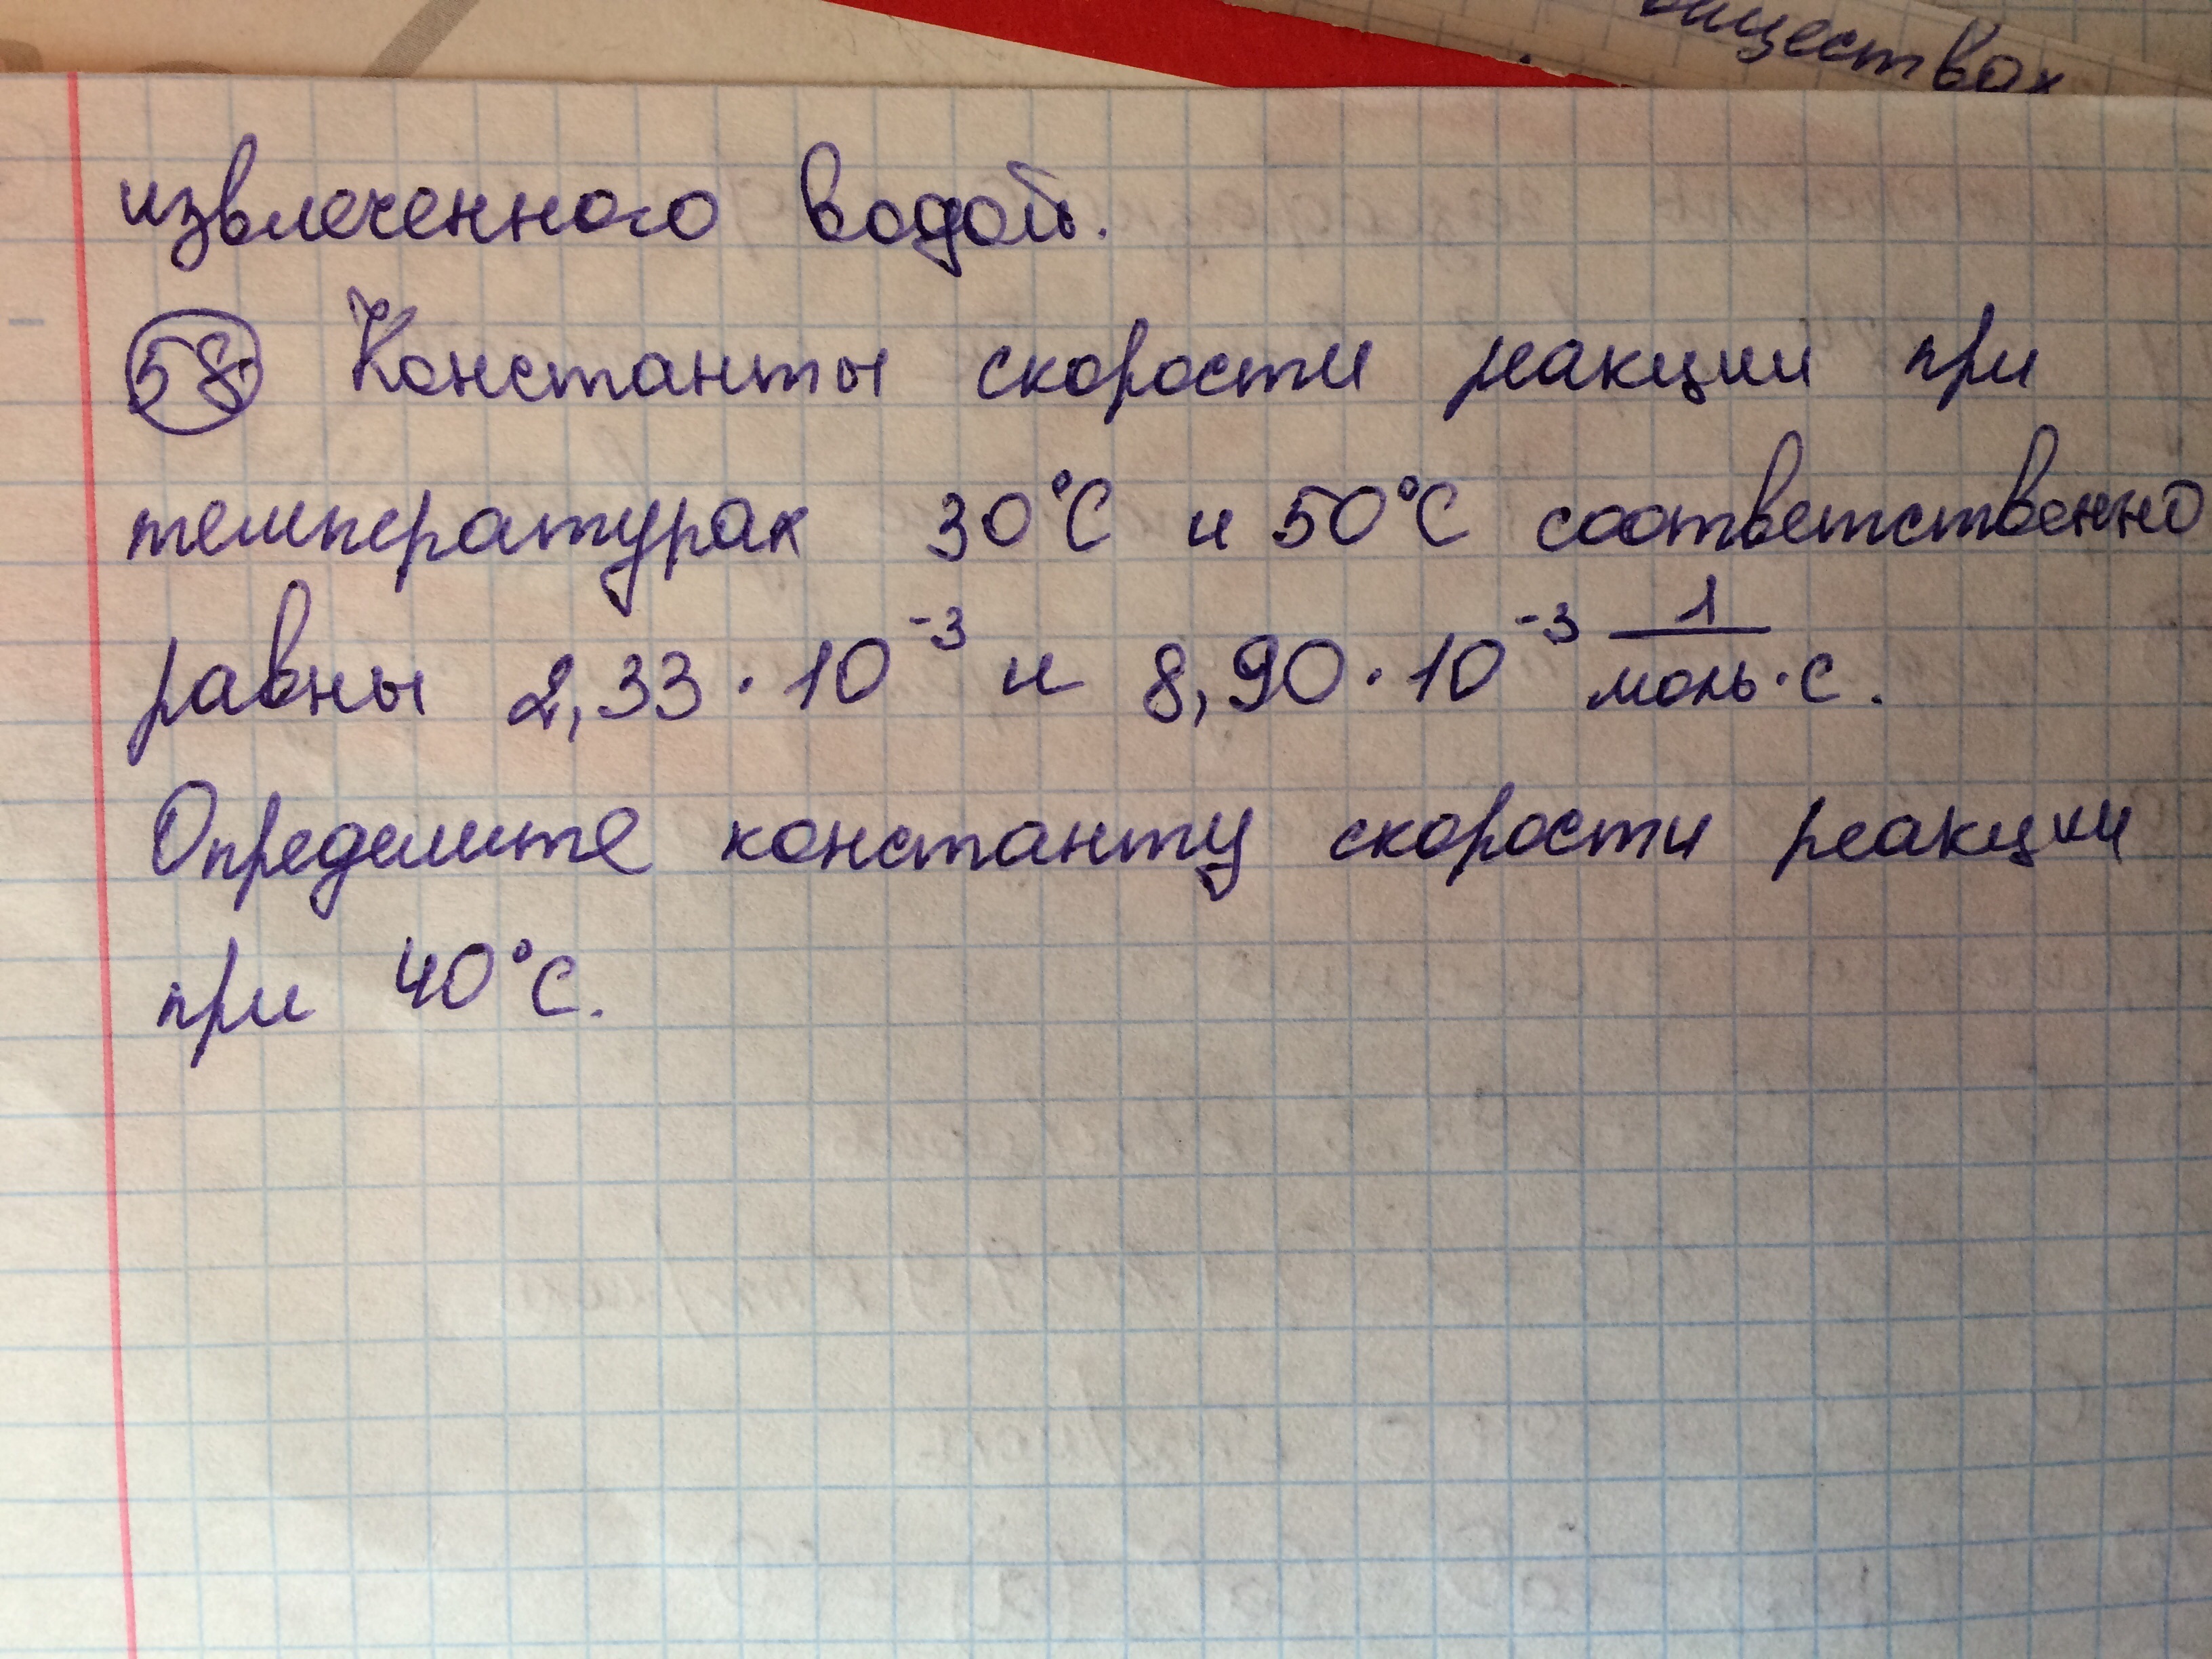 обществах
извлеченного водой.
58. Константы скорости реакции при
температурах 30°С и 50°С соответственно
равны 2,33 · 10⁻³ и 8,90 · 10⁻³ 1/моль·с.
Определите константу скорости реакции
при 40°С.